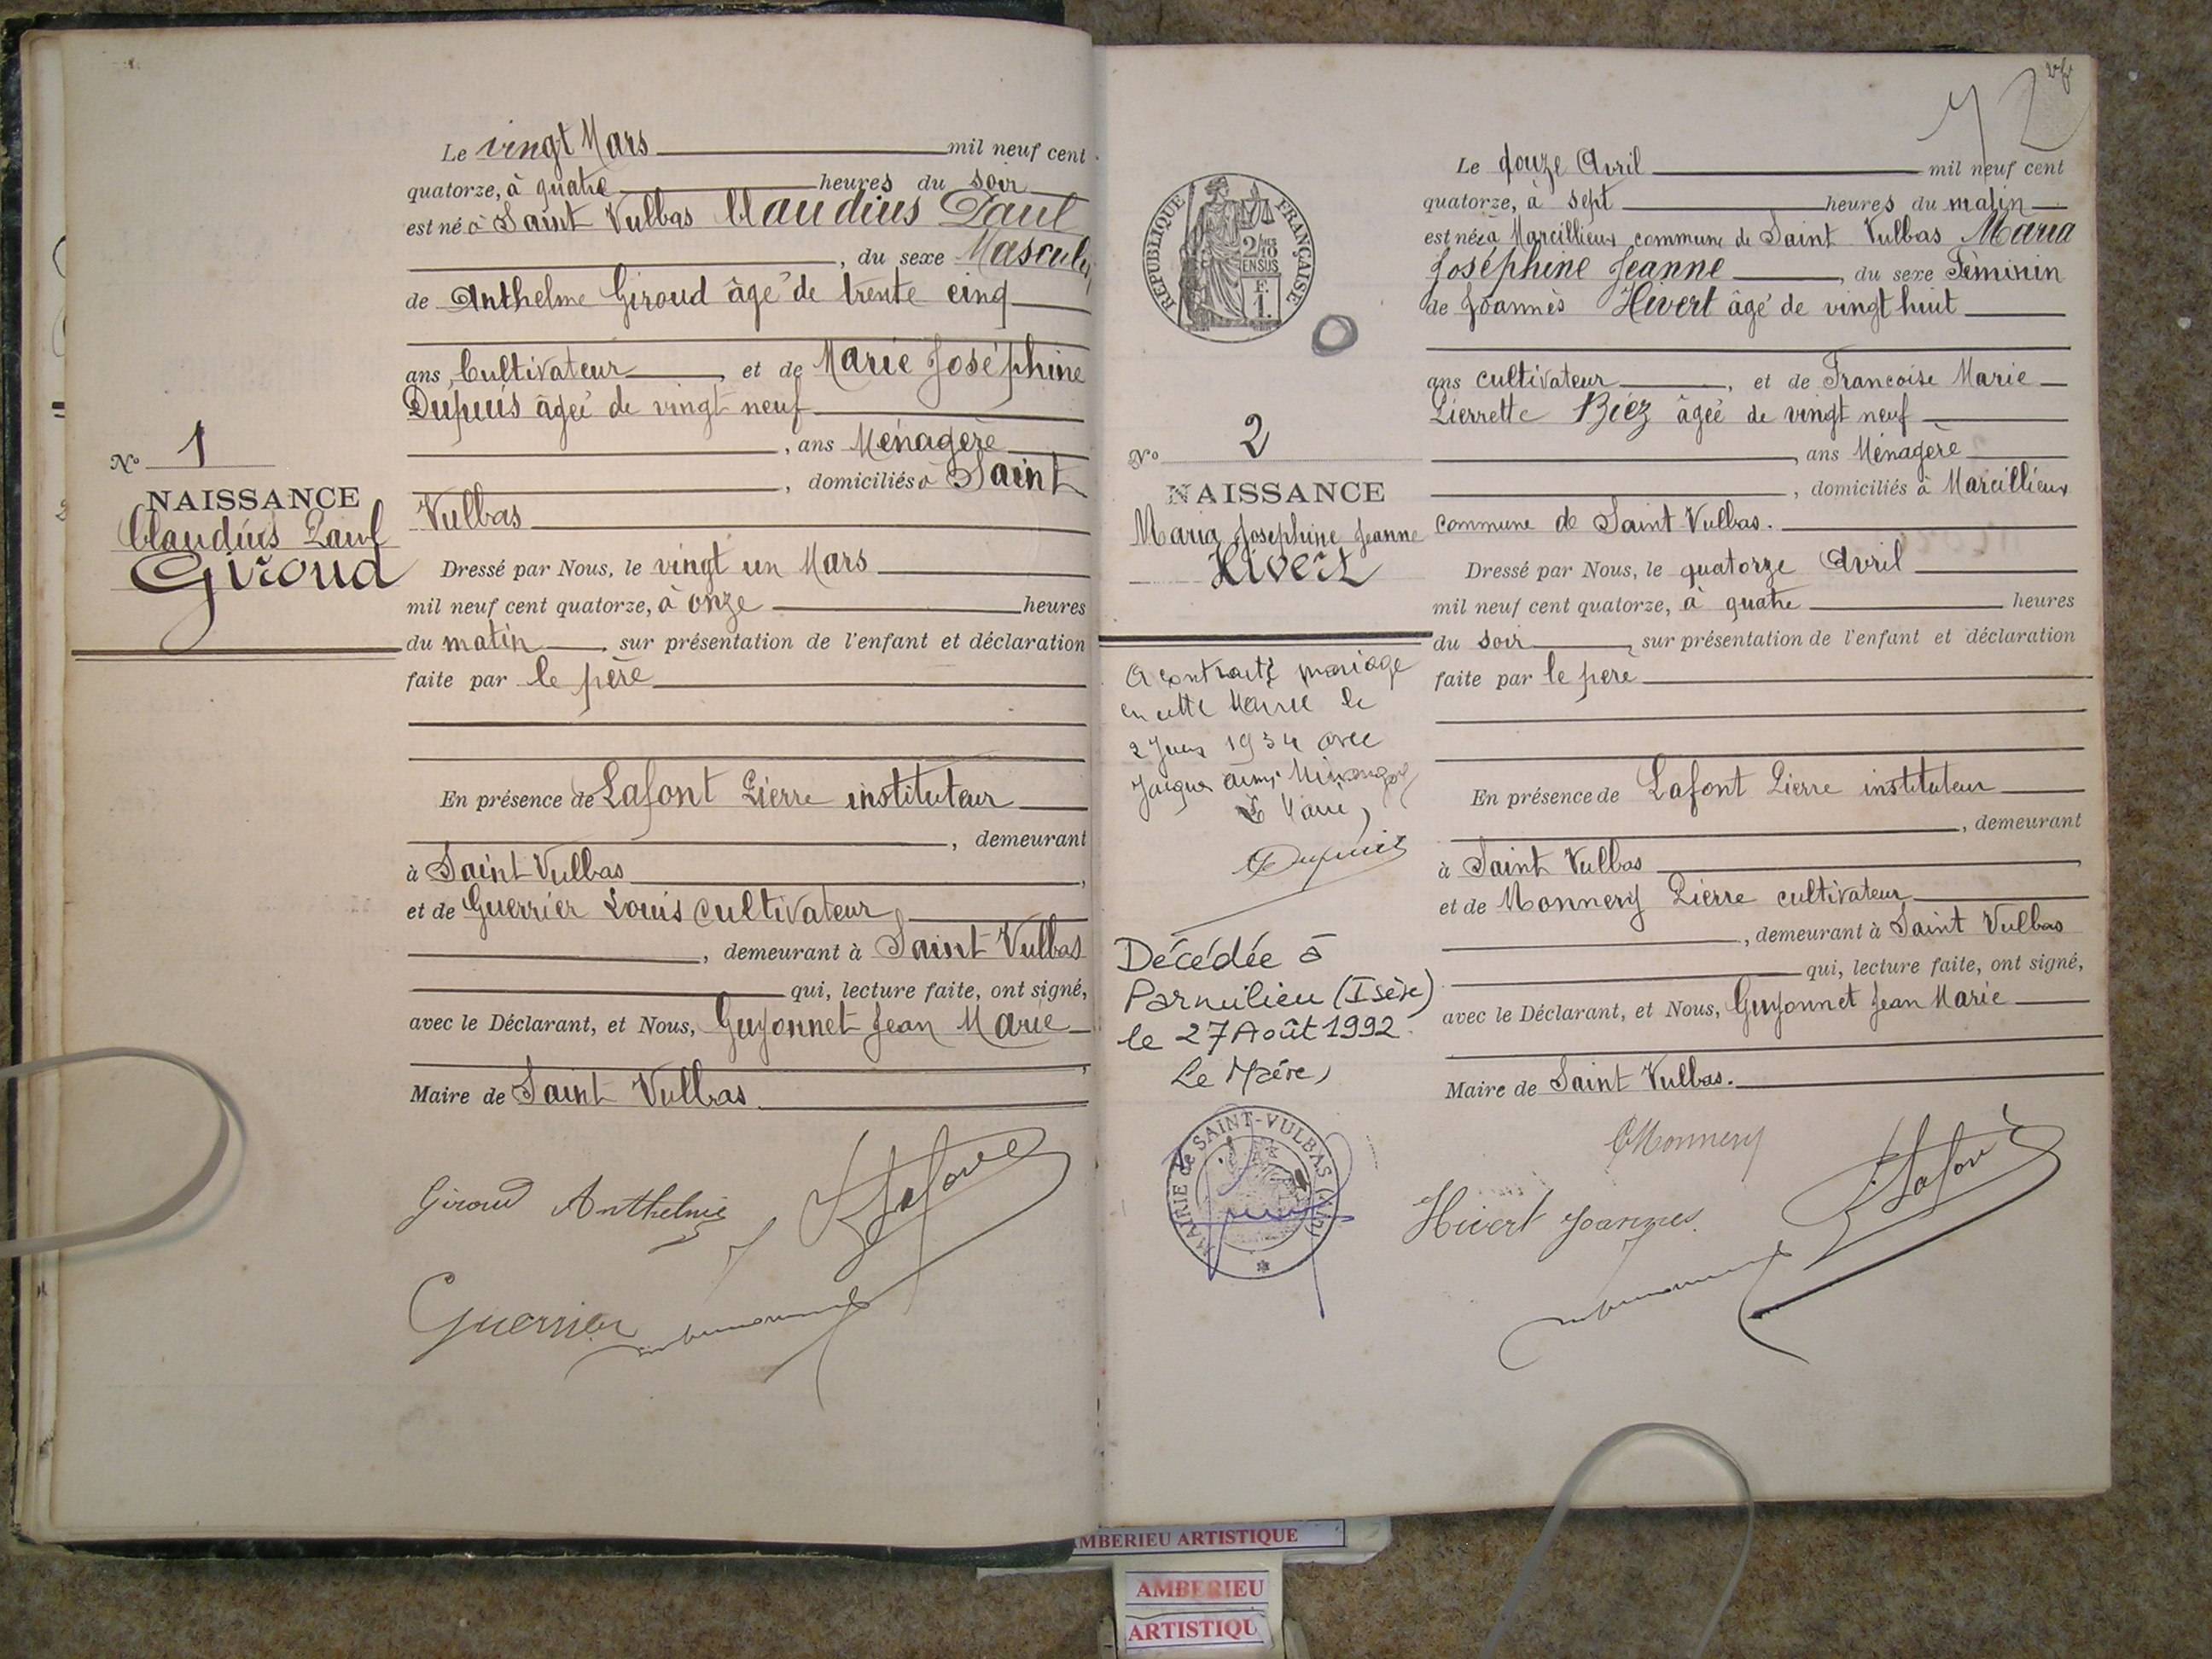 Le vingt Mars mil neuf cent
quatorze, à quatre heures du soir
est né à Saint Vulbas Claudius Paul
, du sexe Masculin
de Anthelme Giroud âgé de trente cinq
ans, Cultivateur, et de Marie Joséphine
Dupuis âgée de vingt neuf
, ans Ménagère
, domiciliés à Saint
Vulbas
N° 1
NAISSANCE
Claudius Paul
Giroud
Dressé par Nous, le vingt un Mars
mil neuf cent quatorze, à onze heures
du matin, sur présentation de l'enfant et déclaration
faite par le père
En présence de Lafont Pierre instituteur
, demeurant
à Saint Vulbas,
et de Guerrier Louis cultivateur
, demeurant à Saint Vulbas
qui, lecture faite, ont signé,
avec le Déclarant, et Nous, Guyonnet Jean Marie
Maire de Saint Vulbas.
Giroud Anthelme
Lafont
Guerrier
2
RÉPUBLIQUE FRANÇAISE
2/10
EN SUS
F.
1.
Le douze Avril mil neuf cent
quatorze, à sept heures du matin
est née à Marcillieux commune de Saint Vulbas Maria
Joséphine Jeanne, du sexe Féminin
de Joannès Hivert âgé de vingt huit
ans cultivateur, et de Francoise Marie
Pierrette Biez âgée de vingt neuf
, ans Ménagère
, domiciliés à Marcillieux
commune de Saint Vulbas.
N° 2
NAISSANCE
Maria Josephine Jeanne
Hivert
Dressé par Nous, le quatorze Avril
mil neuf cent quatorze, à quatre heures
du soir, sur présentation de l'enfant et déclaration
faite par le père
En présence de Lafont Pierre instituteur
, demeurant
à Saint Vulbas,
et de Monnery Pierre cultivateur
, demeurant à Saint Vulbas
qui, lecture faite, ont signé,
avec le Déclarant, et Nous, Guyonnet Jean Marie
Maire de Saint Vulbas.
A contracté mariage
en cette Mairie le
2 Juin 1934 avec
Jacques
Le Maire,
Dupuis
Décédée à
Parmilieu (Isère)
le 27 Août 1992.
Le Maire,
MAIRIE de SAINT-VULBAS (Ain)
Monnery
Hivert Joannes
Lafont
AMBERIEU ARTISTIQUE
AMBERIEU
ARTISTIQU